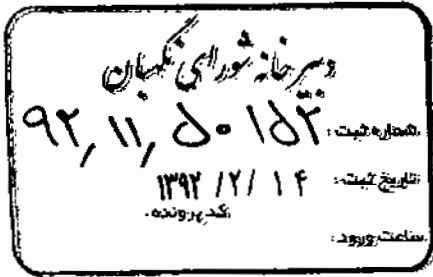 دبیرخانه شورای نگهبان
شماره ثبت: ۹۲/۱۱/۵۰۱۵۲
تاریخ ثبت: ۱۳۹۲/۲/۱۴
کد پرونده:
ساعت ورود: